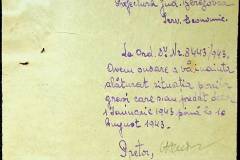 Prefectura Jud. Berezovca
Serv. Economic.
La Ord. Dv. Nr. 8443/943.
Avem onoare a vă înainta
alăturat situația prai-
grani care s'au predat dela
1 Ianuarie 1943 până la 10
August 1943.
Pretor,